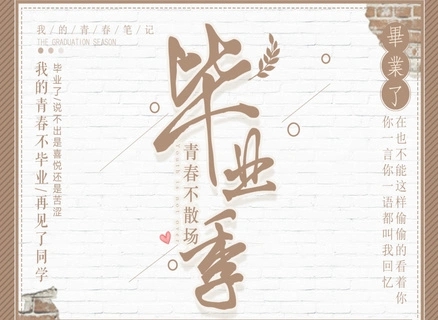 我|的|青|春|笔|记
THE GRADUATION SEASON
毕业了/说不出是喜悦还是苦涩
我的青春不毕业/再见了同学
毕业季
青春不散场
畢業了
在也不能这样偷偷的看着你
你一言你一语都叫我回忆